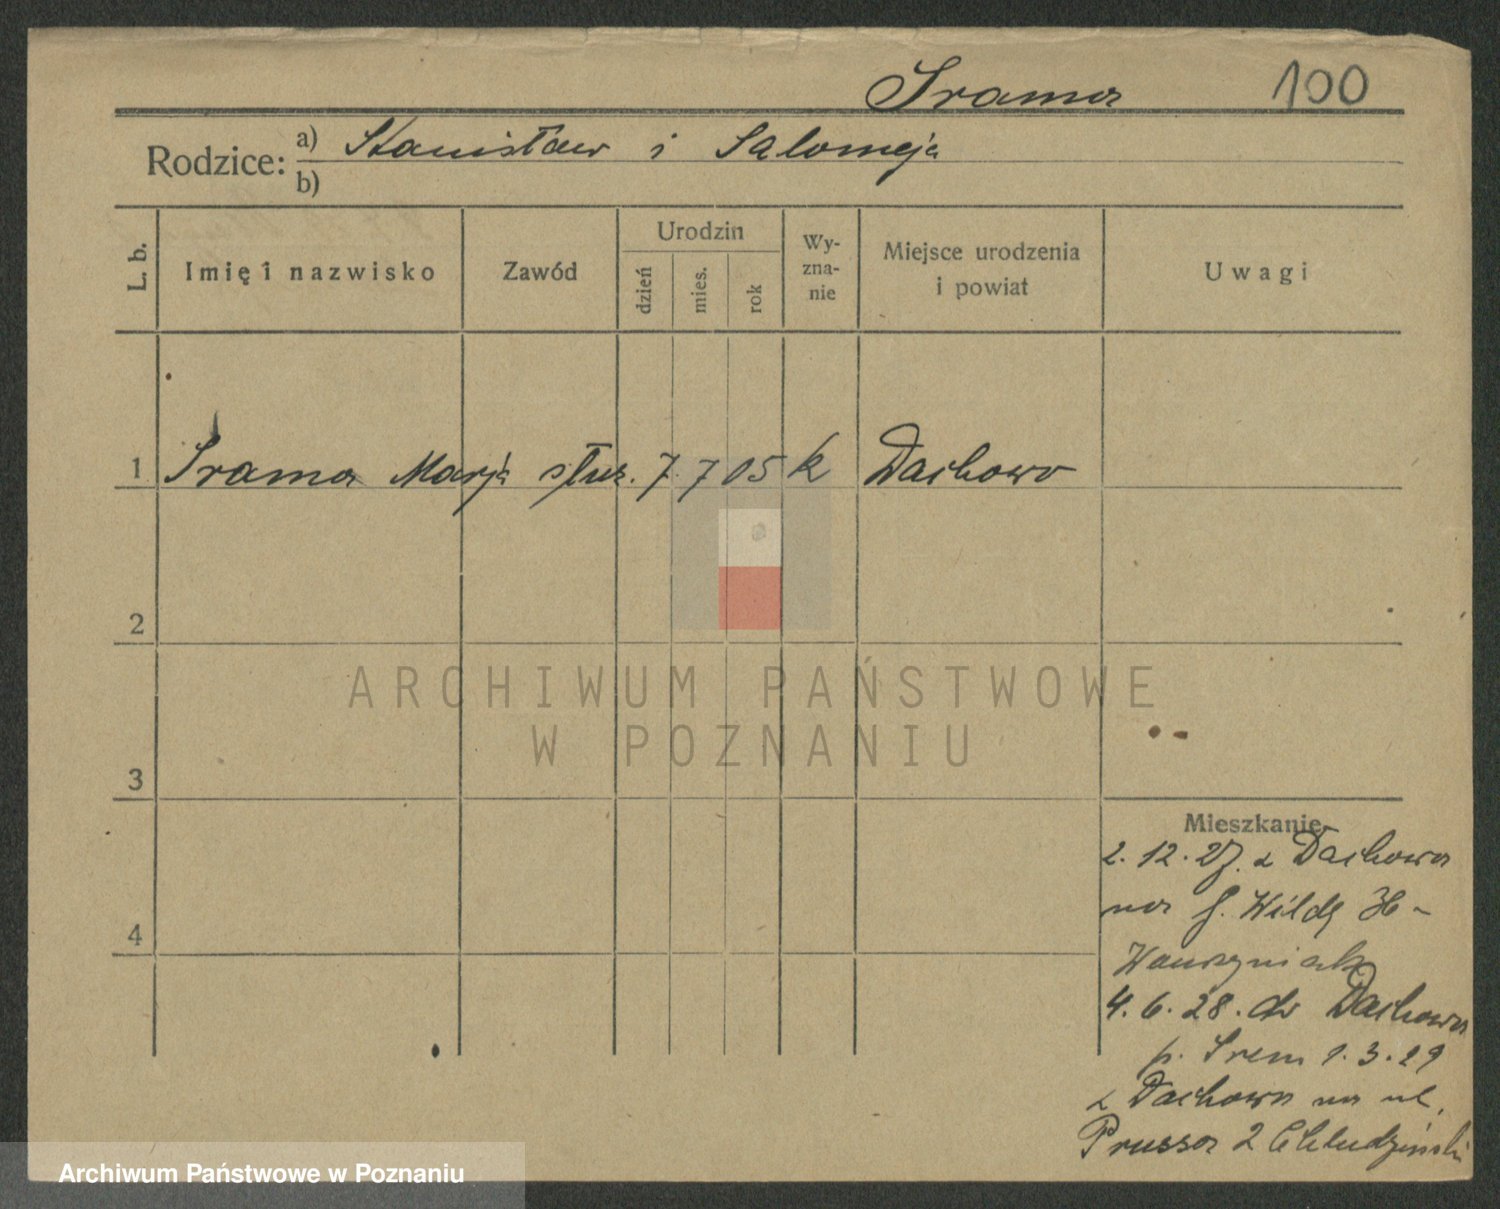 Srama 100
Rodzice: a) Stanisław i Salomeja
b)
L. b. Imię i nazwisko Zawód Urodzin dzień mies. rok Wy-zna-nie Miejsce urodzenia i powiat Uwagi
1 Srama Marja służ. 7. 7 05 k Dachowo
2
ARCHIWUM PAŃSTWOWE
W POZNANIU
3
Mieszkanie
2. 12. 27. z Dachowa
na g. Wildę
4
Wawrzyniak
4. 6. 28. do Dachowa
p. Śrem 1. 3. 29
z Dachowa na ul.
Prusa 2 Chludziński
Archiwum Państwowe w Poznaniu